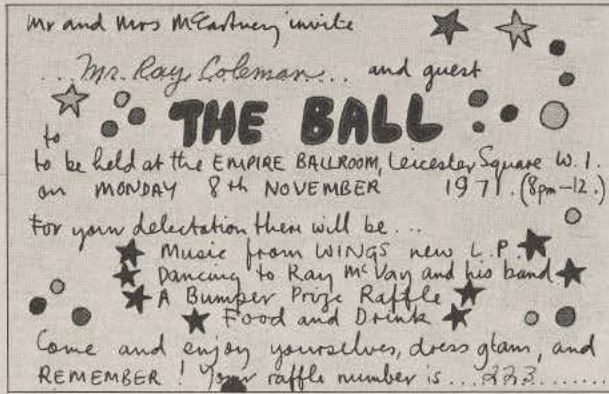 Mr and Mrs McCartney invite
...Mr. Ray Coleman... and guest
to THE BALL
to be held at the EMPIRE BALLROOM, Leicester Square W.1.
on MONDAY 8th NOVEMBER 1971. (8pm-12.)
For your delectation there will be...
Music from WINGS new L.P.
Dancing to Ray McVay and his band
A Bumper Prize Raffle
Food and Drink
Come and enjoy yourselves, dress glam, and
REMEMBER! Your raffle number is ...223........